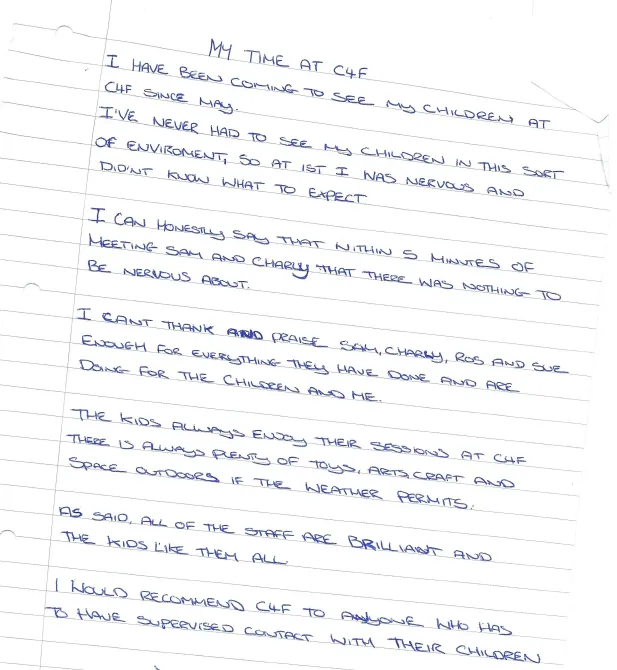 MY TIME AT C4F
I HAVE BEEN COMING TO SEE MY CHILDREN AT
C4F SINCE MAY.
I'VE NEVER HAD TO SEE MY CHILDREN IN THIS SORT
OF ENVIROMENT, SO AT 1ST I WAS NERVOUS AND
DIDN'T KNOW WHAT TO EXPECT
I CAN HONESTLY SAY THAT WITHIN 5 MINUTES OF
MEETING SAM AND CHARLY THAT THERE WAS NOTHING TO
BE NERVOUS ABOUT.
I CANT THANK AND PRAISE SAM, CHARLY, ROS AND SUE
ENOUGH FOR EVERYTHING THEY HAVE DONE AND ARE
DOING FOR THE CHILDREN AND ME.
THE KIDS ALLWAYS ENJOY THEIR SESSIONS AT C4F
THERE IS ALWAYS PLENTY OF TOYS, ARTS, CRAFT AND
SPACE OUTDOORS IF THE WEATHER PERMITS.
AS SAID, ALL OF THE STAFF ARE BRILLIANT AND
THE KIDS LIKE THEM ALL
I WOULD RECOMMEND C4F TO ANYONE WHO HAS
TO HAVE SUPERVISED CONTACT WITH THEIR CHILDREN